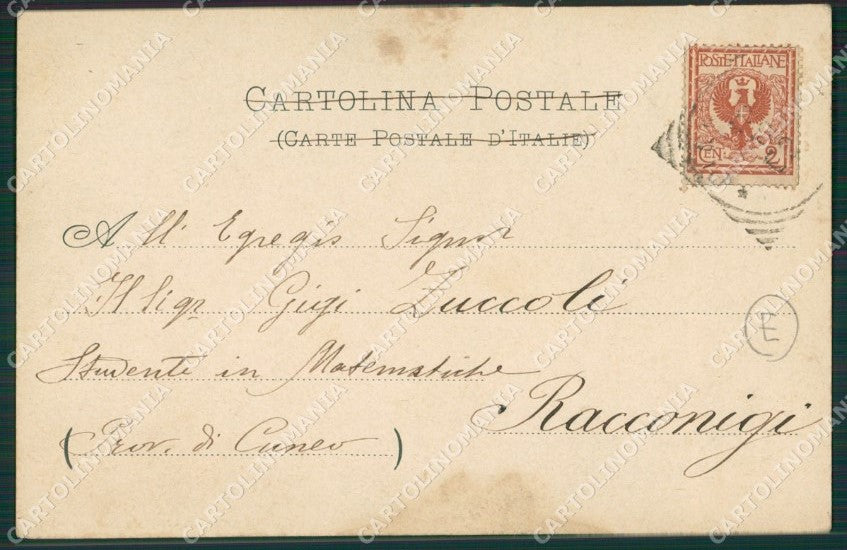 CARTOLINA POSTALE
(CARTE POSTALE D'ITALIE)
POSTE ITALIANE
CEN 2
All' Egregio Signor
Il Sigr Gigi Zuccoli
Studente in Matematiche
Racconigi
(Prov. di Cuneo)
E
CARTOLINOMANIA